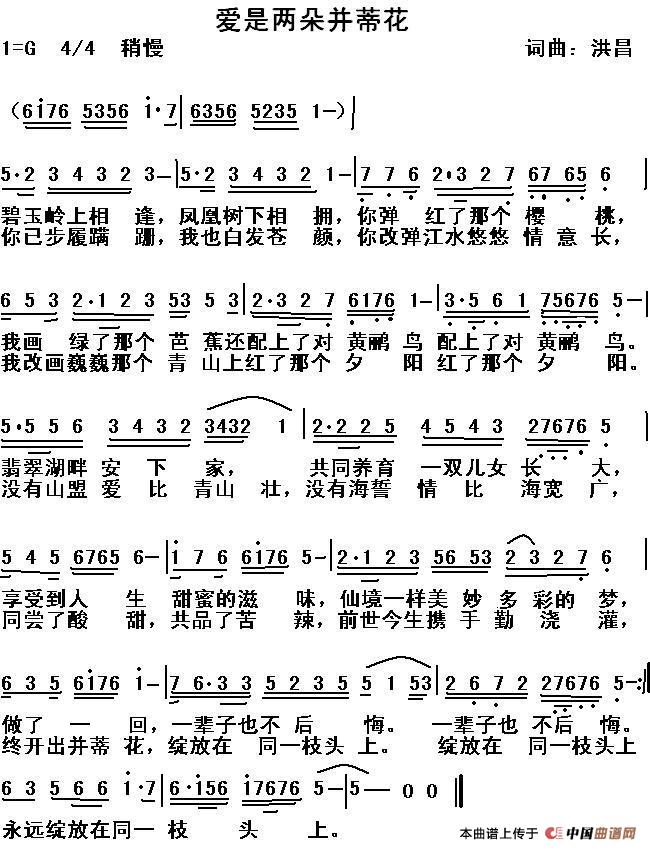 爱是两朵并蒂花
1=G 4/4 稍慢 词曲：洪昌
（6i76 5356 i·7|6356 5235 1-）|
5·2 3432 3-|5·2 3432 1-|776 2·327 6765 6
碧玉岭上相 逢，凤凰树下相 拥，你弹 红了那个 樱 桃，
你已步履蹒 跚，我也白发苍 颜，你改弹江水悠悠 情 意 长，
653 2·123 53 53|2·327 6176 1-|3·561 75676 5-|
我画 绿了那个 芭 蕉还配上了对 黄鹂 鸟 配上了对 黄鹂 鸟。
我改画巍巍那个 青 山上红了那个 夕 阳 红了那个 夕 阳。
5·556 3432 3432 1|2·225 4543 27676 5|
翡翠湖畔 安 下 家， 共同养育 一双儿女 长 大，
没有山盟 爱 比 青山 壮，没有海誓 情 比 海宽 广，
545 6765 6-|i76 6i76 5-|2·123 5653 2327 6|
享受到人 生 甜蜜的滋 味，仙境一样美 妙 多 彩的 梦，
同尝了酸 甜，共品了苦 辣，前世今生携 手 勤 浇 灌，
635 6i76 i-|76·3 3523 5 5153|2672 27676 5-:|
做了 一 回，一辈子也 不 后 悔。 一辈子也 不后 悔。
终开出并蒂 花，绽放在 同一枝头 上。 绽放在 同一枝头上
63 566 i·7|6·i56 i7676 5|5-00‖
永远绽放在同一 枝 头 上。
本曲谱上传于 中国曲谱网